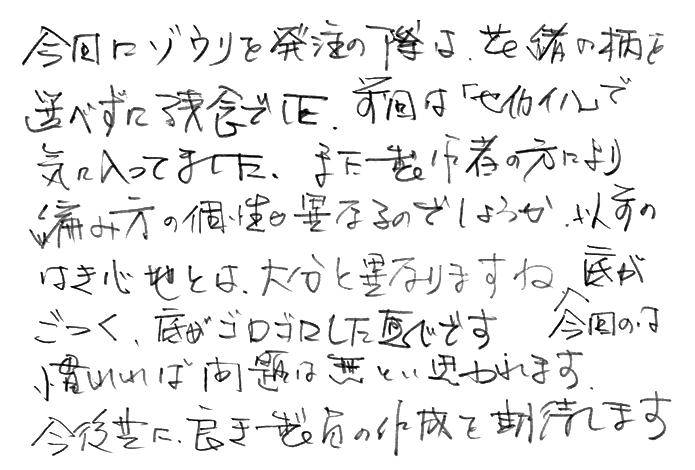 今回にゾウリを発注の際は、花緒の柄を
選べずに残念でした、前回は「セ  イル」で
気に入ってました、また製作者の方により
編み方の個性も異なるのでしょうか、以前の
はき心地とは、大分と異なりますね、底が
ごつく、底がゴロゴロした感じです 今回のは
慣れれば問題は無いと思われます、
今後共に、良き製品の作成を期待します